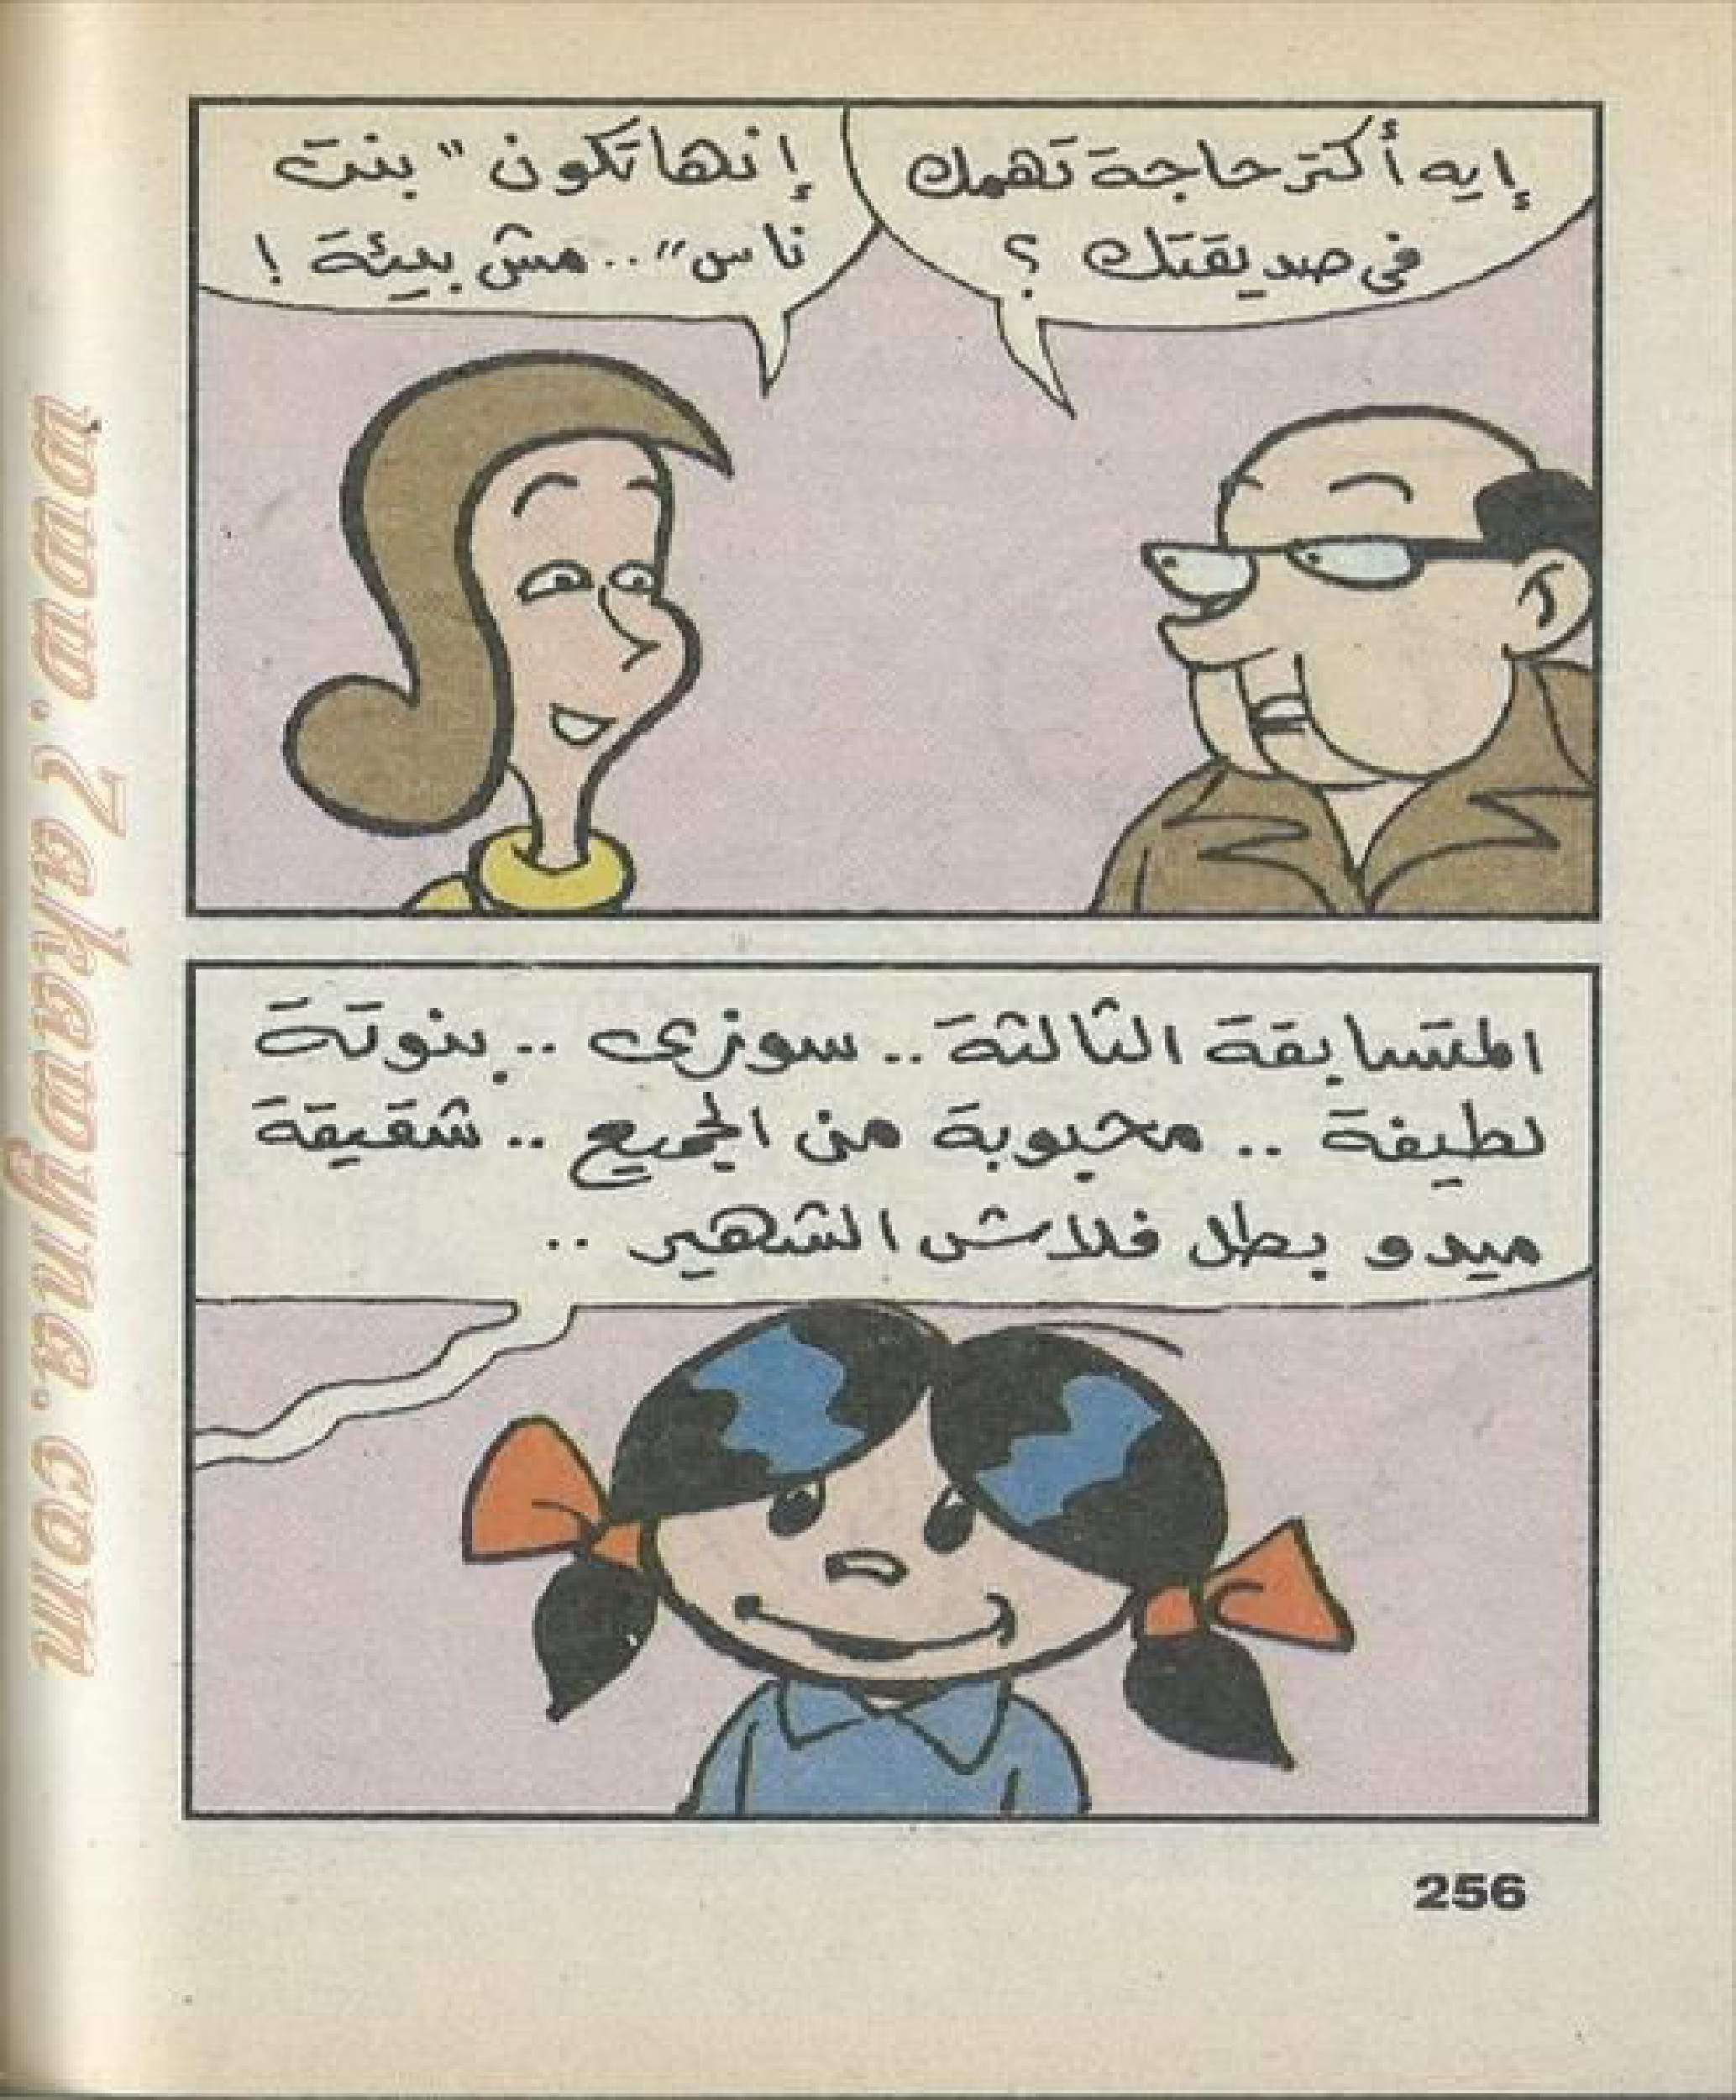 إيه أكتر حاجة تهمك
فى صديقتك ؟
إنها تكون "بنت
ناس".. مش بيئة !
المتسابقة الثالثة .. سوزى .. بنوتة
لطيفة .. محبوبة من الجميع .. شقيقة
ميدو بطل فلاش الشهير ..
256
www.7akawyna.com